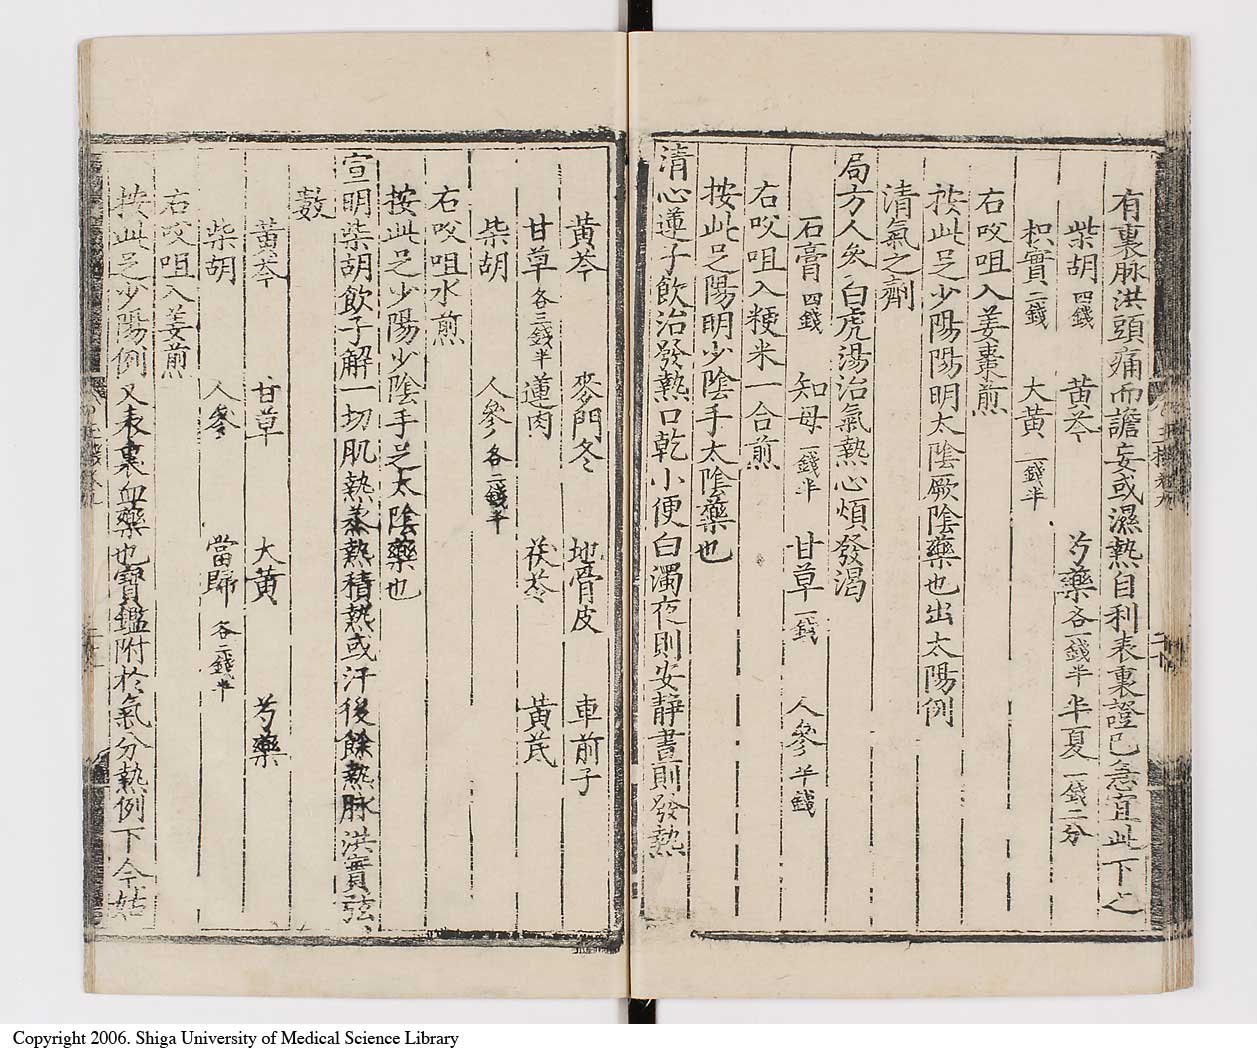 有裏脉洪頭痛而譫妄或濕熱自利表裏證已急宜此下之
柴胡四錢 黄芩 芍藥各一錢半 半夏一錢二分
枳實二錢 大黄一錢半
右㕮咀入姜棗煎
按此足少陽陽明太陰厥陰藥也出太陽例
清氣之劑
局方人參白虎湯治氣熱心煩發渴
石膏四錢 知母一錢半 甘草一錢 人參半錢
右㕮咀入粳米一合煎
按此足陽明少陰手太陰藥也
清心蓮子飲治發熱口乾小便白濁夜則安靜晝則發熱
黄芩 麥門冬 地骨皮 車前子
甘草各三錢半 蓮肉 茯苓 黄芪
柴胡 人參各二錢半
右㕮咀水煎
按此足少陽少陰手足太陰藥也
宣明柴胡飲子解一切肌熱蒸熱積熱或汗後餘熱脉洪實弦
數
黄芩 甘草 大黄 芍藥
柴胡 人參 當歸各二錢半
右㕮咀入姜煎
按此足少陽例又表裏血藥也寶鑑附於氣分熱例下今姑
Copyright 2006. Shiga University of Medical Science Library